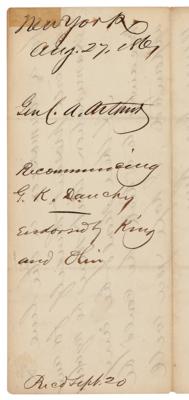 New York
Aug. 27, 1861
Gen C. A. Arthur
Recommending
G. K. Dauchy
Endorsed by King
and Olin
Rec'd Sept. 20